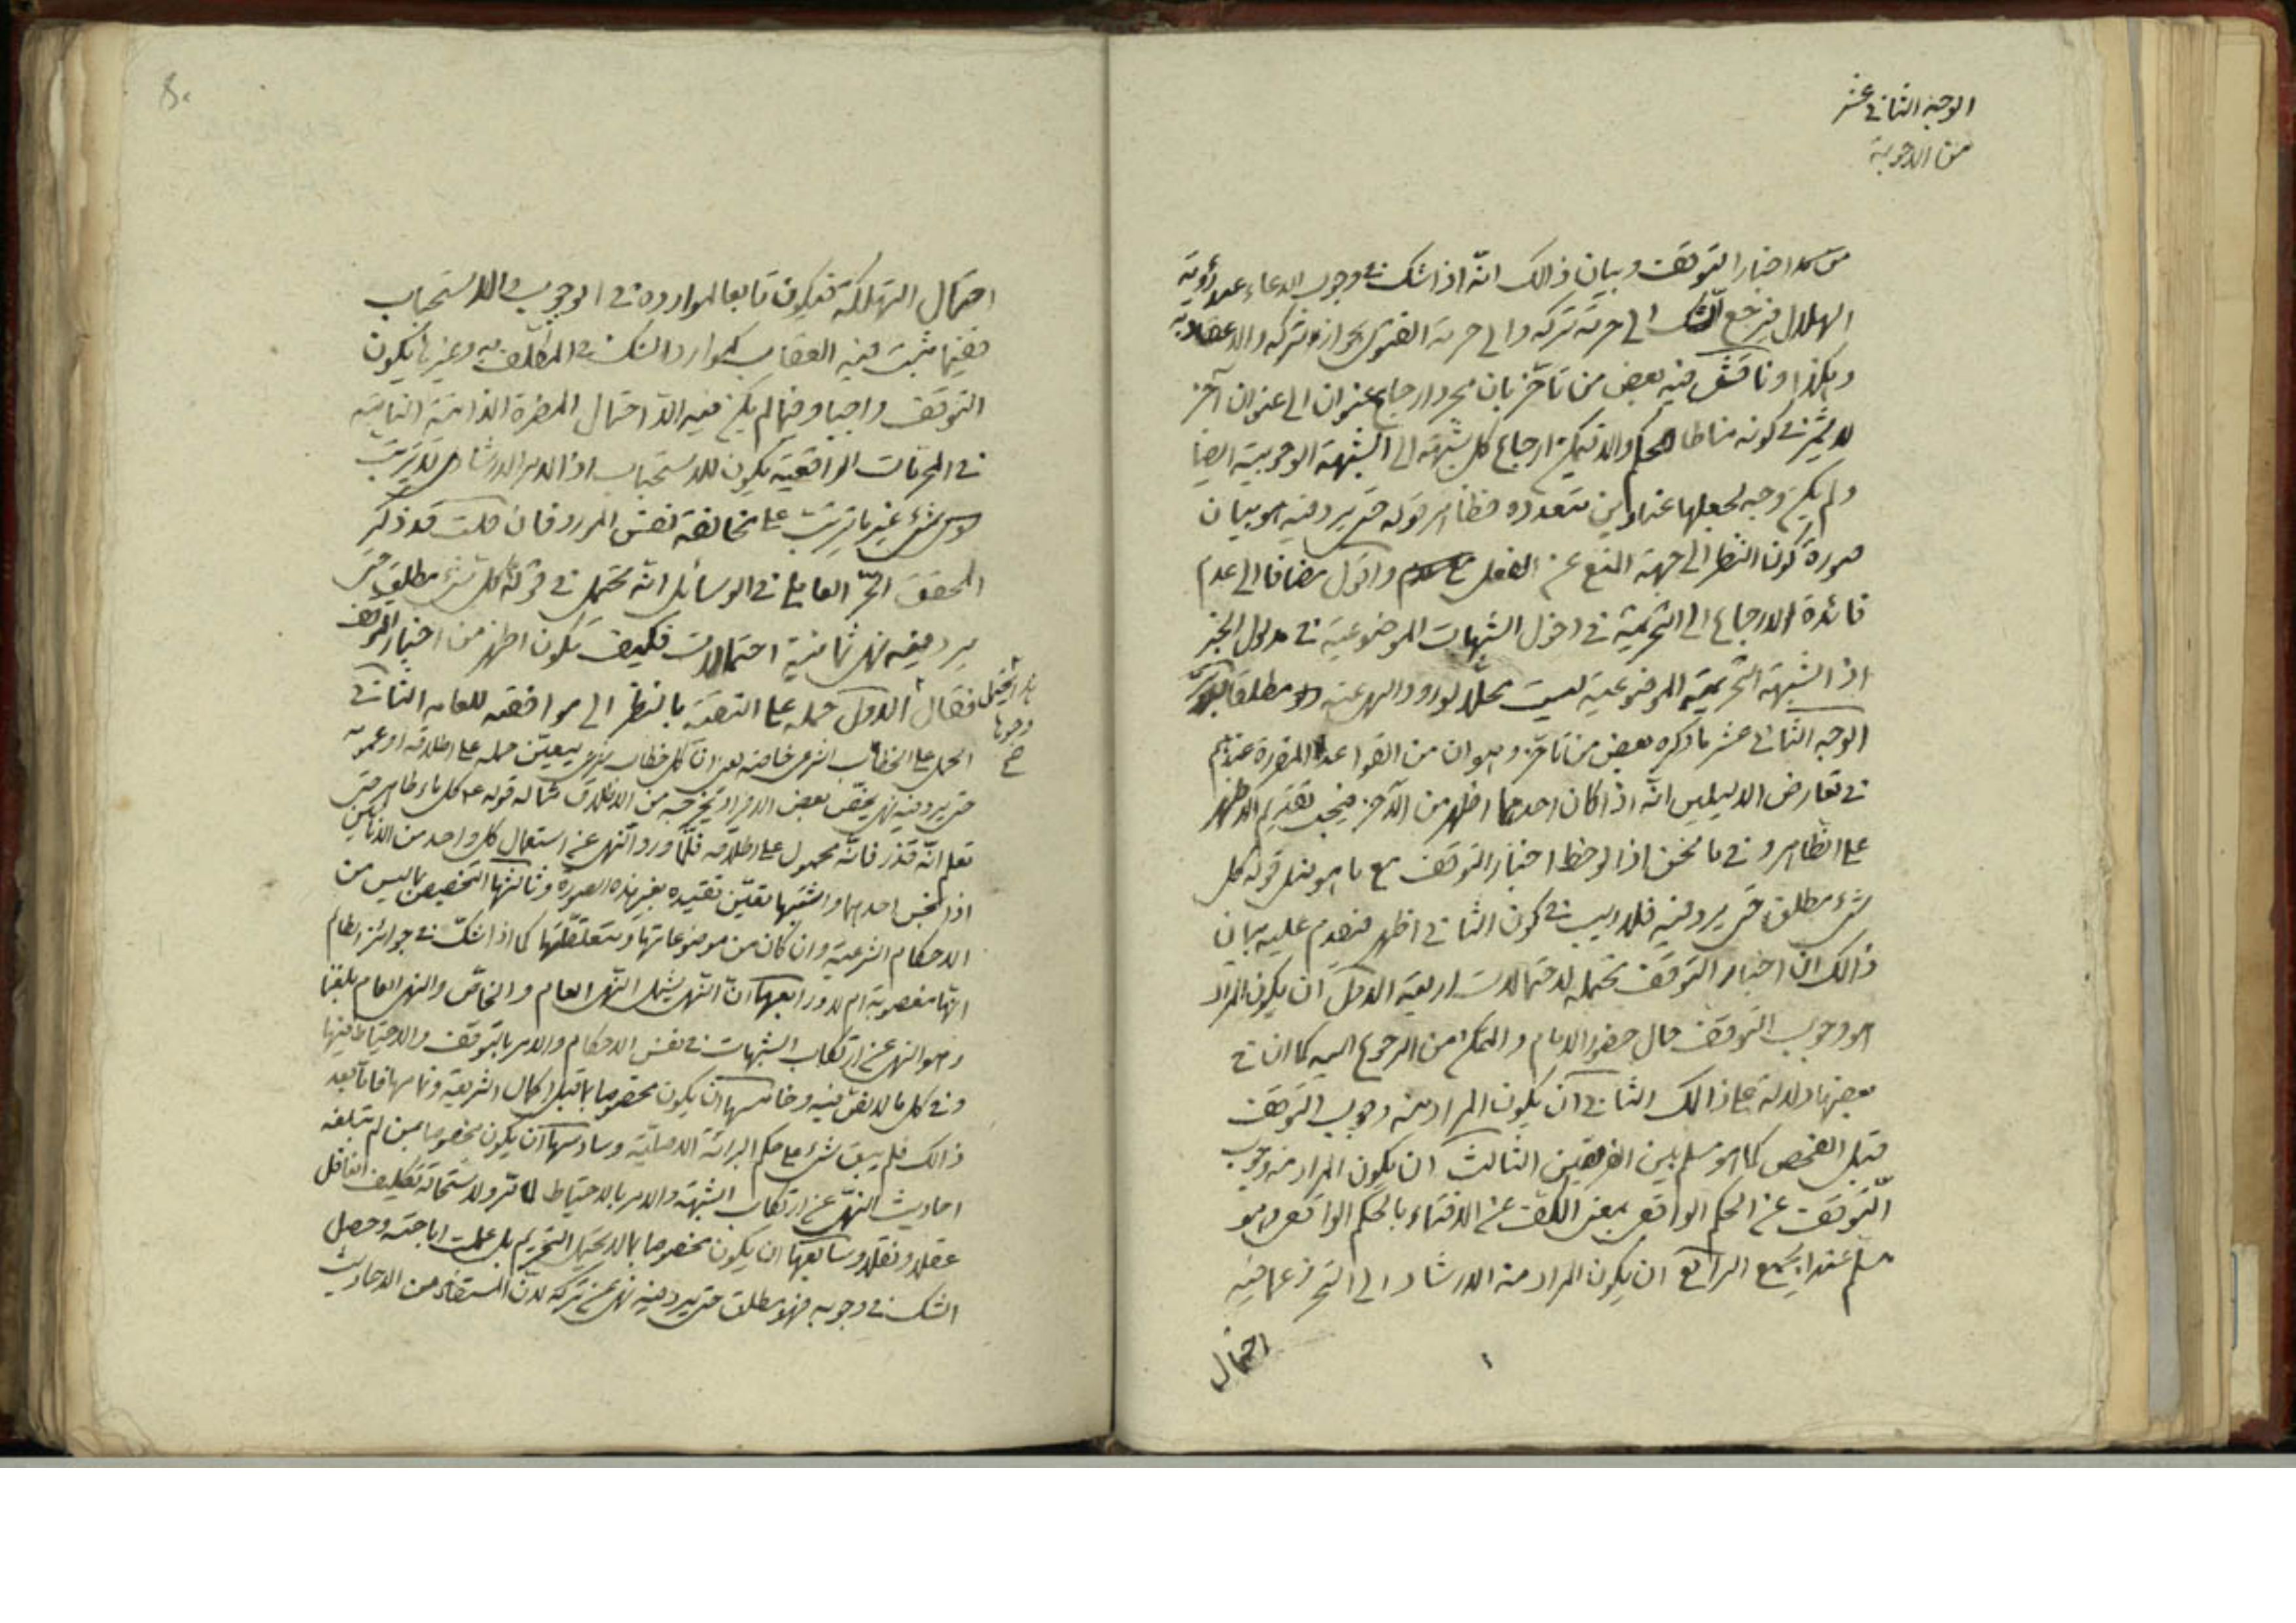 الوجه الثانی عشر
من الاجوبة
اخبار التوقف وبیان ذالك انّه اذا شك فی وجوب الدعاء عند رؤیة
الهلال فیرجع الشك الی حرمة تركه والی حرمة الفتوی بجواز تركه والاعتقاد به
وهكذا وناقش فیه بعض من تاخّر بان مجرد ارجاع عنوان الی عنوان آخر
لا یثمر فی كونه مناطا للحكم والا فیمكن ارجاع كل شبهة الی الشبهة الوجوبیة ایضا
ولم یكن وجه لجعلها عناوین متعدده فظاهر قوله حتی یرد فیه هو بیان
صورة كون النظر الی جهة المنع عن الفعل واقول مضافا الی عدم
فائدة الارجاع الی التحریمیة فی دخول الشبهات الموضوعیة فی مدلول الخبر
اذ الشبهة التحریمیة الموضوعیة لیست محلّا لورود النهی عنه مطلقا
الوجه الثانی عشر ما ذكره بعض من تاخّر وهو ان من القواعد المقررة عندهم
فی تعارض الدلیلین انّه اذا كان احدهما اظهر من الآخر فیجب تقدیم الاظهر
علی الظاهر وفی ما نحن اذا لوحظ اخبار التوقف مع ما هو مثل قوله كل
شیء مطلق حتی یرد فیه فلا ریب فی كون الثانی اظهر فیقدم علیه بیان
ذالك انّ اخبار التوقف محتملة لاحتمالات اربعة الاول ان یكون المراد
هو وجوب التوقف حال حضور الامام والتمكن من الرجوع الیه كما ان فی
بعضها دلالة علی ذالك الثانی ان یكون المراد منه وجوب التوقف
قبل الفحص كما هو مسلم بین الفریقین الثالث ان یكون المراد منه وجوب
التوقف عن الحكم الواقعی بمعنی الكف عن الافتاء بالحكم الواقعی وهو
مسلم عند الجمیع الرابع ان یكون المراد منه الارشاد الی التحرز عما فیه
احتمال
احتمال التهلكة فیكون تابعا لموارده فی الوجوب والاستحباب
ففیما ثبت فیه العقاب كموارد الشك فی المكلّف به وغیرها یكون
التوقف واجبا وفیما لم یكن فیه الّا احتمال المضرة الذاتیة الثابتة
فی المحرمات الواقعیة یكون للاستحباب اذ الامر الارشادی لا یترتب
شیء غیر ما یترتب علی مخالفة نفس المورد فان قلت قد ذكر
المحقق الحرّ العاملی فی الوسائل انّه یحتمل فی قوله كل شیء مطلق حتی
یرد فیه نهی ثمانیة احتمالات فكیف یكون اظهر من اخبار التوقف
فقال الاول حمله علی التقیة بالنظر الی موافقته للعامه الثانی
وجوها
صح
الحمل علی الخطاب الشرعی خاصة بمعنی ان كل خطاب شرعی یتعین حمله علی اطلاقه او عمومه
حتی یرد فیه نهی یخصّ بعض الافراد یخرجه من الاطلاق مثاله قوله ع كل ماء طاهر حتی
تعلم انّه قذر فانّه محمول علی اطلاقه فلمّا ورد النهی عن استعمال كل واحد من الانائین
اذا نجس احدهما واشتبها تعیّن تقییده بغیر هذه الصورة وثالثها التخصیص بما لیس من
الاحكام الشرعیة وان كان من موضوعاتها ومتعلقاتها كما اذا شكّ فی جوائز الظالم
انّها مغصوبة ام لا ورابعها انّ النهی یشمل النهی العام والخاصّ والنهی العام بلغنا
وهو النهی عن ارتكاب الشبهات فی نفس الاحكام والامر بالتوقف والاحتیاط فیها
وفی كل ما لا نصّ فیه وخامسها ان یكون مخصوصا بما قبل اكمال الشریعة وتمامها فامّا بعد
ذالك فلم یبق شیء علی حكم البرائة الاصلیّة وسادسها ان یكون مخصوصا بمن لم تبلغه
احادیث النهی عن ارتكاب الشبهة والامر بالاحتیاط لما مرّ ولاستحالة تكلیف الغافل
عقلا ونقلا وسابعها ان یكون مخصوصا بما لا یحتمل التحریم بل علمت اباحته وحصل
الشك فی وجوبه فهو مطلق حتی یرد فیه نهی عن تركه لانّ المستفاد من الاحادیث